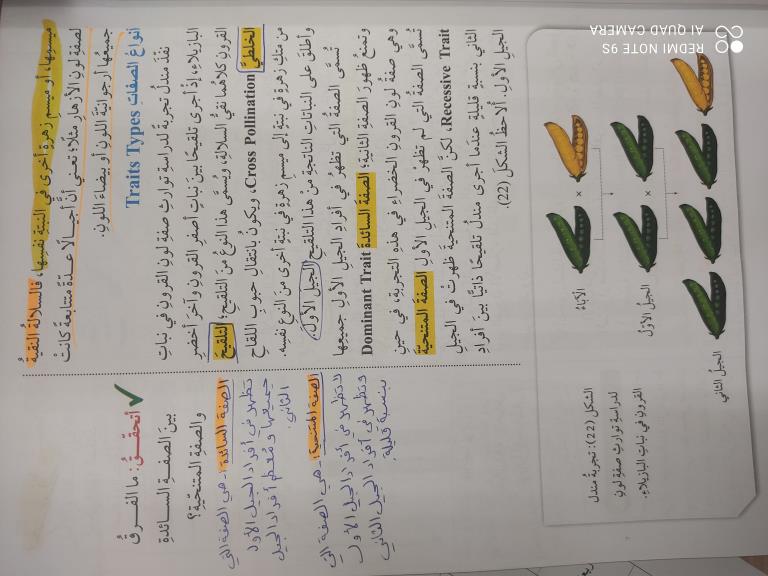 ميسمها، أو ميسم زهرة أخرى في النبتة نفسها، فالسلالة النقية
لصفة لون الأزهار مثلا؛ تعني أن أجيالا عدة متتابعة كانت
جميعها أرجوانية اللون أو بيضاء اللون.
أنواع الصفات Traits Types
نفذ مندل تجربة لدراسة توارث صفة لون القرون في نبات
البازيلاء، إذ أجرى تلقيحا بين نبات أصفر القرون وآخر أخضر
القرون كلاهما نقي السلالة، ويسمى هذا النوع من التلقيح؛ التلقيح
الخلطي Cross Pollination، ويكون بانتقال حبوب اللقاح
من متك زهرة في نبتة إلى ميسم زهرة في نبتة أخرى من النوع نفسه.
وأطلق على النباتات الناتجة من هذا التلقيح الجيل الأول.
تسمى الصفة التي تظهر في أفراد الجيل الأول جميعها
وتمنع ظهور الصفة الثانية؛ الصفة السائدة Dominant Trait
وهي صفة لون القرون الخضراء في هذه التجربة، في حين
تسمى الصفة التي لم تظهر في الجيل الأول الصفة المتنحية
Recessive Trait، لكن الصفة المتنحية ظهرت في الجيل
الثاني بنسبة قليلة عندما أجرى مندل تلقيحا ذاتيا بين أفراد
الجيل الأول. ألاحظ الشكل (22).
أتحقق: ما الفرق
بين الصفة السائدة
والصفة المتنحية؟
الصفة السائدة:- هي الصفة التي
تظهر في أفراد الجيل الأول
جميعها ومعظم أفراد الجيل
الثاني.
الصفة المتنحية:- هي الصفة التي
لا تظهر في أفراد الجيل الأول
وتظهر في أفراد الجيل الثاني
بنسبة قليلة.
الآباء
×
الجيل الأول
×
الجيل الثاني
الشكل (22): تجربة مندل
لدراسة توارث صفة لون
القرون في نبات البازيلاء.
REDMI NOTE 9S
AI QUAD CAMERA